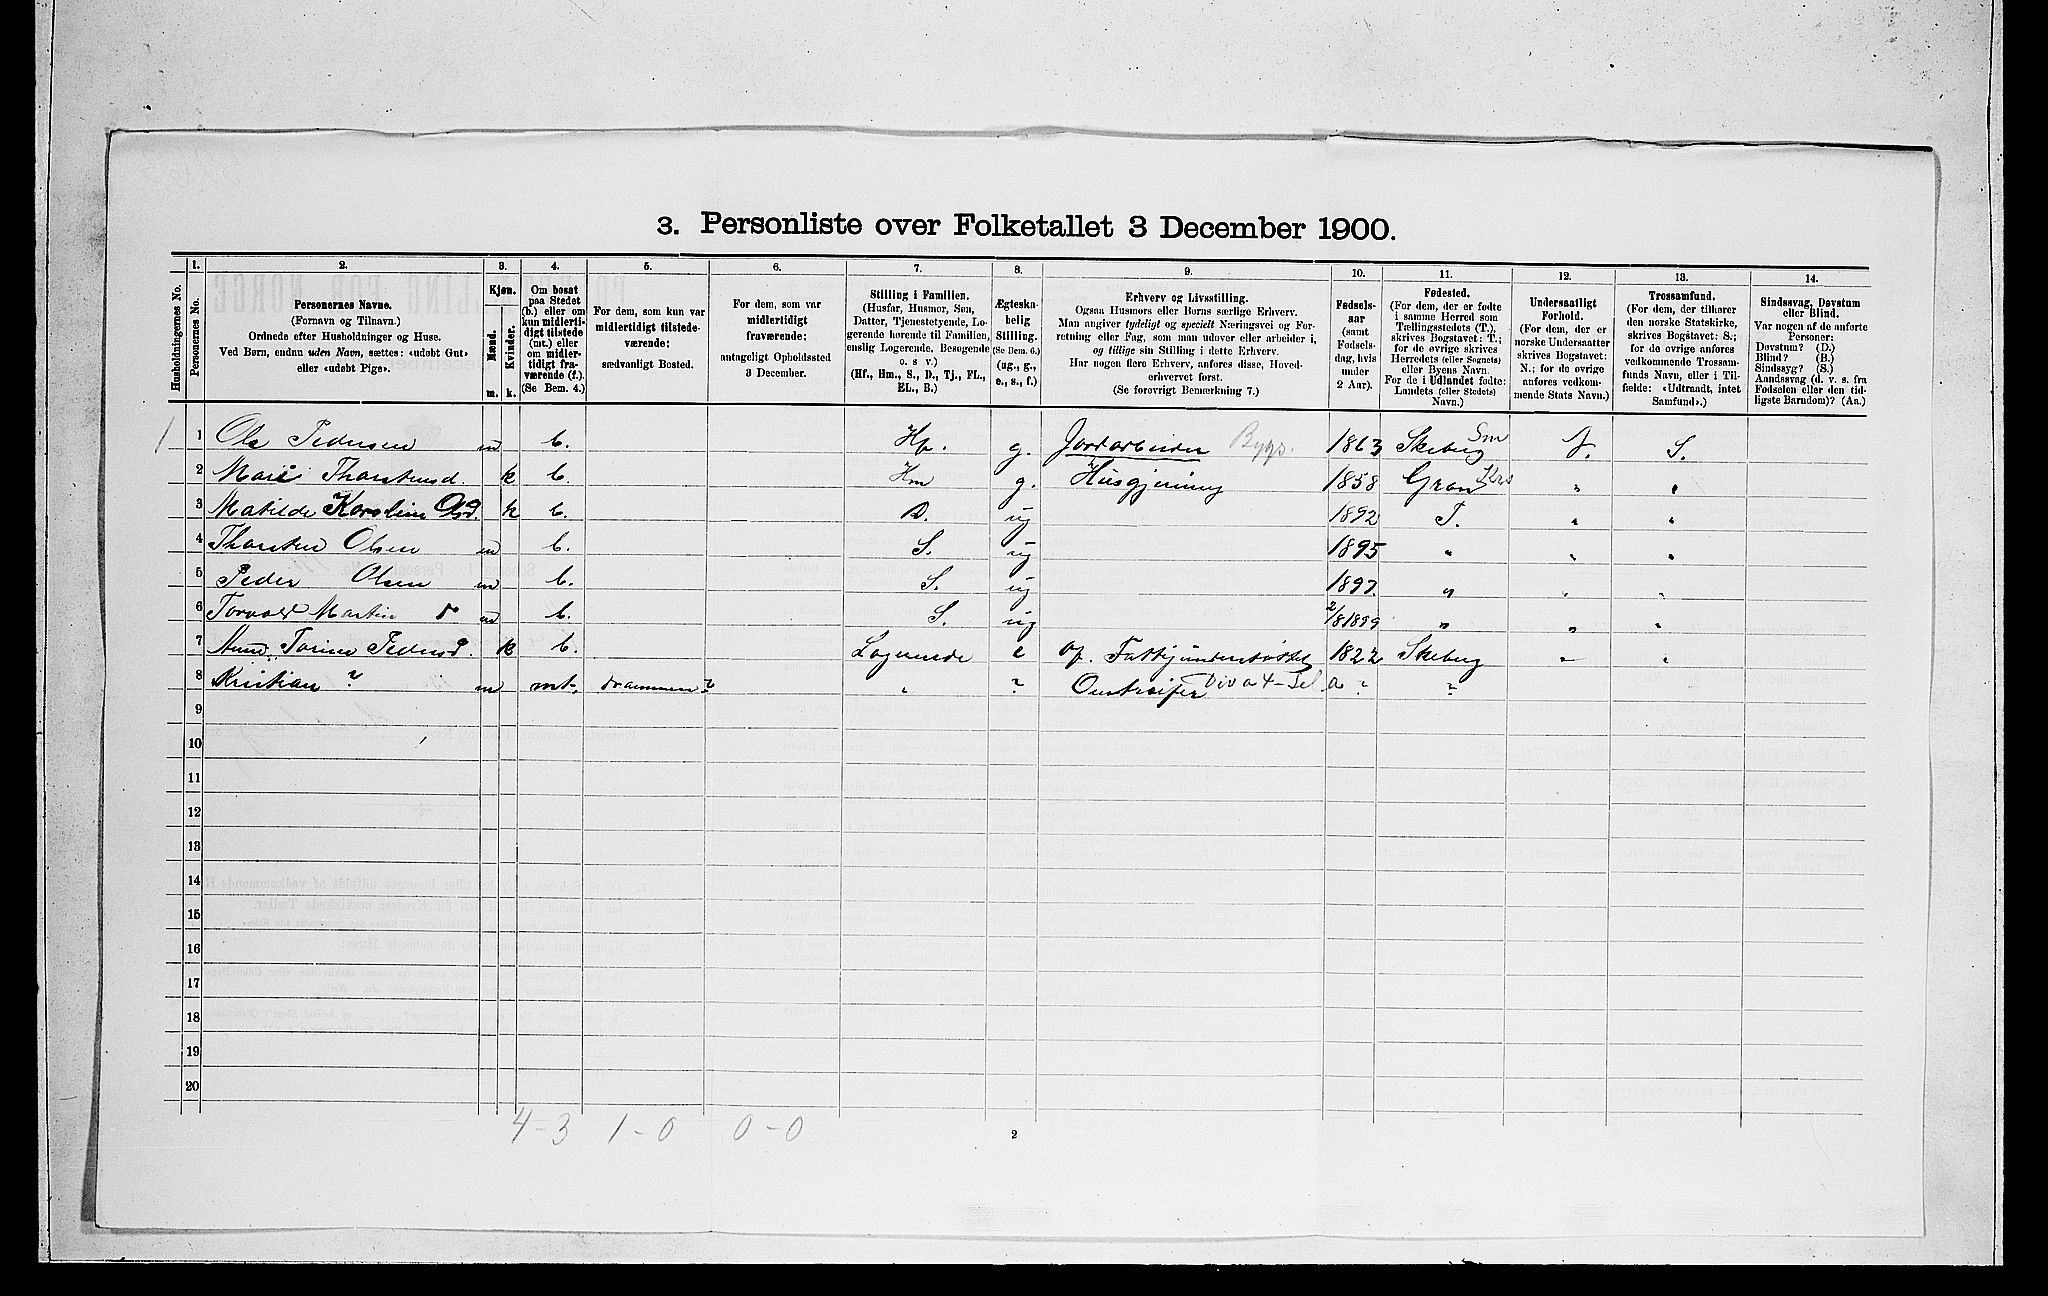 3. Personliste over Folketallet 3 December 1900.
Husholdningernes No.
1. Personernes No.
2. Personernes Navne.
(Fornavn og Tilnavn.)
Ordnede efter Husholdninger og Huse.
Ved Børn, endnu uden Navn, sættes: «udøbt Gut»
eller «udøbt Pige».
3. Kjøn.
Mænd. Kvinder.
m. k.
4.
Om bosat
paa Stedet
(b.) eller om
kun midlerti-
digt tilstede
(mt.) eller
om midler-
tidigt fra-
værende (f.).
(Se Bem. 4.)
5.
For dem, som kun var
midlertidigt tilstede-
værende:
sædvanligt Bosted.
6.
For dem, som var
midlertidigt
fraværende:
antageligt Opholdssted
3 December.
7.
Stilling i Familien.
(Husfar, Husmor, Søn,
Datter, Tjenestetyende, Lo-
gerende hørende til Familien,
enslig Logerende, Besøgende
o. s v.)
(Hf., Hm., S., D., Tj., FL.,
EL., B.)
8.
Ægteska-
belig
Stilling.
(Se Bem. 6.)
(ug., g.,
e., s., f.)
9.
Erhverv og Livsstilling.
Ogsaa Husmors eller Børns særlige Erhverv.
Man angiver tydeligt og specielt Næringsvei og For-
retning eller Fag, som man udøver eller arbeider i,
og tillige sin Stilling i dette Erhverv.
Har nogen flere Erhverv, anføres disse, Hoved-
erhvervet først.
(Se forøvrigt Bemærkning 7.)
10.
Fødsels-
aar
(samt
Fødsels-
dag, hvis
under
2 Aar).
11.
Fødested.
(For dem, der er fødte
i samme Herred som
Tællingsstedets (T.),
skrives Bogstavet: T.;
for de øvrige skrives
Herredets (eller Sognets)
eller Byens Navn.
For de i Udlandet fødte:
Landets (eller Stedets)
Navn.)
12.
Undersaatligt
Forhold.
(For dem, der er
norske Undersaatter
skrives Bogstavet:
N.; for de øvrige
anføres vedkom-
mende Stats Navn.)
13.
Trossamfund.
(For dem, der tilhører
den norske Statskirke,
skrives Bogstavet: S.;
for de øvrige anføres
vedkommende Trossam-
funds Navn, eller i Til-
fælde: «Udtraadt, intet
Samfund».)
14.
Sindssvag, Døvstum
eller Blind.
Var nogen af de anførte
Personer:
Døvstum? (D.)
Blind? (B.)
Sindssyg? (S.)
Aandssvag (d. v. s. fra
Fødselen eller den tid-
ligste Barndom)? (Aa.)
1 1 Ole Pedersen m b. Hf. g. Jordarbeider Bygs. 1863 Skeberg Sm N. S.
2 Mari Thorstensd. k b. Hm g. Husgjerning 1858 Gran Krs " "
3 Matilde Karoline Olsd. k b. D. ug 1892 T. " "
4 Thorsten Olsen m b. S. ug 1895 " " "
5 Peder Olsen m b. S. ug 1897. " " "
6 Torvald Martin m b. S. ug 2/8 1899 " " "
7 Torine Pedersd. k b. Logerende e af. Fattigunderstøttet 1822 Skeberg " "
8 Kristian ? m mt. Drammen? " ? ? ?
9
10
11
12
13
14
15
16
17
18
19
20
4-3 1-0 0-0
2